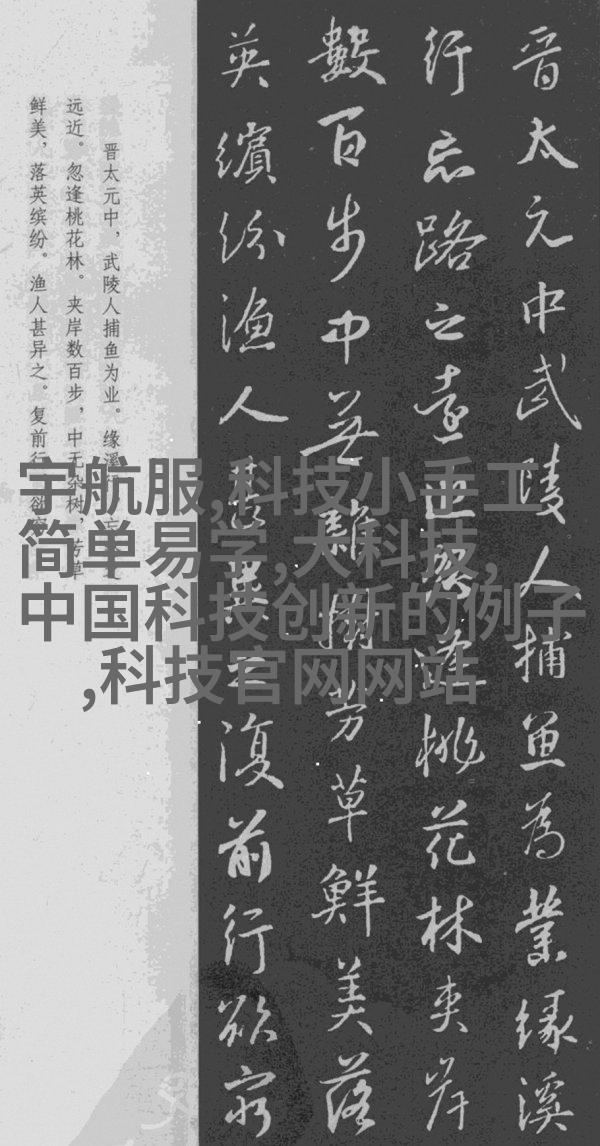 晋太元中武陵人捕魚為業緣溪
行忘路之遠近忽逢桃花林夾岸
數百步中無雜樹芳草鮮美落
英繽紛漁人甚異之復前行欲窮
晋太元中，武陵人捕鱼为业。缘溪
远近。忽逢桃花林。夹岸数百步，中无杂树，芳草
鲜美，落英缤纷。渔人甚异之。复前行
宇航服,科技小手工
简单易学,大科技,
中国科技创新的例子
,科技官网网站